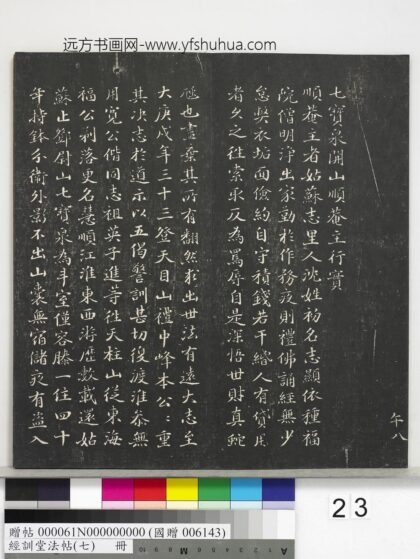 远方书画网-www.yfshuhua.com
七寶泉開山順菴主行實
順菴主者姑蘇志里人沈姓初名志顯依種福
院僧明淨出家勤於作務夜則禮佛誦經無少
怠弊衣垢面儉約自守積錢若干緡人有貸用
者久之往索取反為罵辱自是深悟世財真蛇
虺也盡棄其所有翻然求出世法有遠大志至
大庚戌年三十三登天目山禮中峰本公公重
其決志於道示以五偈警訓甚切後渡淮參無
用寬公偕同志祖英子進等往天柱山從東海
福公剃落更名慧順江淮東西游歷數載還姑
蘇止鄧尉山七寶泉為斗室僅容膝一住四十
年持鉢分衛外影不出山裹無宿儲夜有盜入
午八
23
贈帖 000061N000000000 (國贈 006143)
經訓堂法帖(七) 冊